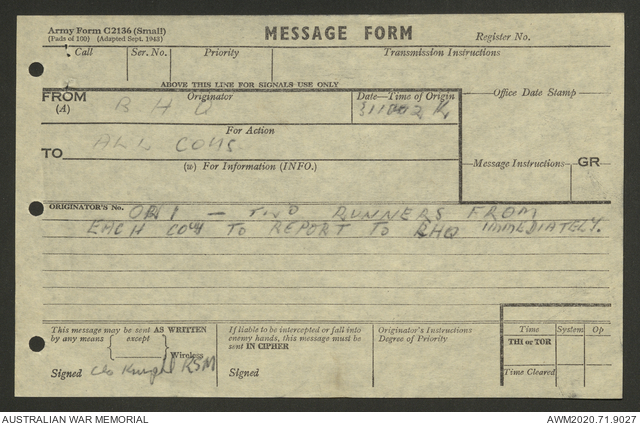 Army Form C2136 (Small)
(Pads of 100) (Adapted Sept. 1943)
MESSAGE FORM
Register No.
Call Ser. No. Priority Transmission Instructions
ABOVE THIS LINE FOR SIGNALS USE ONLY
FROM (A) Originator Date—Time of Origin Office Date Stamp
B H Q
For Action
TO
ALL COYS
(w) For Information (INFO.)
Message Instructions GR
ORIGINATOR'S No. — TWO RUNNERS FROM
EACH COY TO REPORT TO BHQ IMMEDIATELY.
This message may be sent AS WRITTEN
by any means except
Wireless
Signed RSM
If liable to be intercepted or fall into
enemy hands, this message must be
sent IN CIPHER
Signed
Originator's Instructions
Degree of Priority
Time System Op
THI or TOR
Time Cleared
AUSTRALIAN WAR MEMORIAL
AWM2020.71.9027